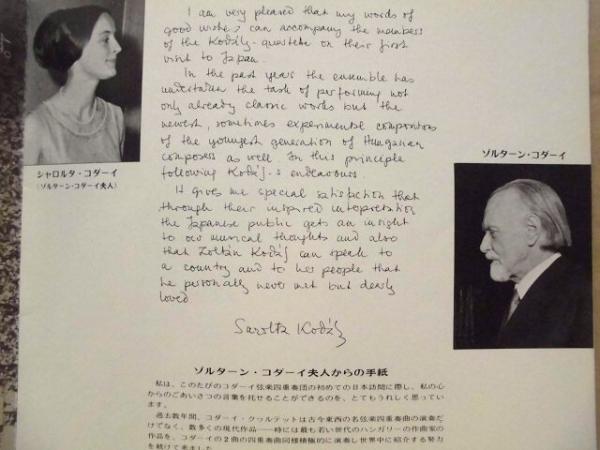 I am very pleased that my words of
good wishes can accompany the members
of the Kodály-quartett on their first
visit to Japan.
In the past years the ensemble has
undertaken the task of performing not
only already classic works but the
newest, sometimes experimental compositions
of the youngest generation of Hungarian
composers as well. In this principle
following Kodály-s endeavours.
It gives me special satisfaction that
through their inspired interpretation
the Japanese public gets an insight
to our musical thoughts and also
that Zoltán Kodály can speak to
a country and to her people that
he personally never met but dearly
loved.
Sarolta Kodály
シャロルタ・コダーイ
（ゾルターン・コダーイ夫人）
ゾルターン・コダーイ
ゾルターン・コダーイ夫人からの手紙
私は、このたびのコダーイ弦楽四重奏団の初めての日本訪問に際し、私の心
からのごあいさつの言葉を托せることができるのを、とてもうれしく思ってい
ます。
過去数年間、コダーイ・クヮルテットは古今東西の名弦楽四重奏曲の演奏だ
けでなく、数多くの現代作品——時には最も若い世代のハンガリーの作曲家の
作品を、コダーイの2曲の四重奏曲同様積極的に演奏し世界中に紹介する努力
を続けて来ました